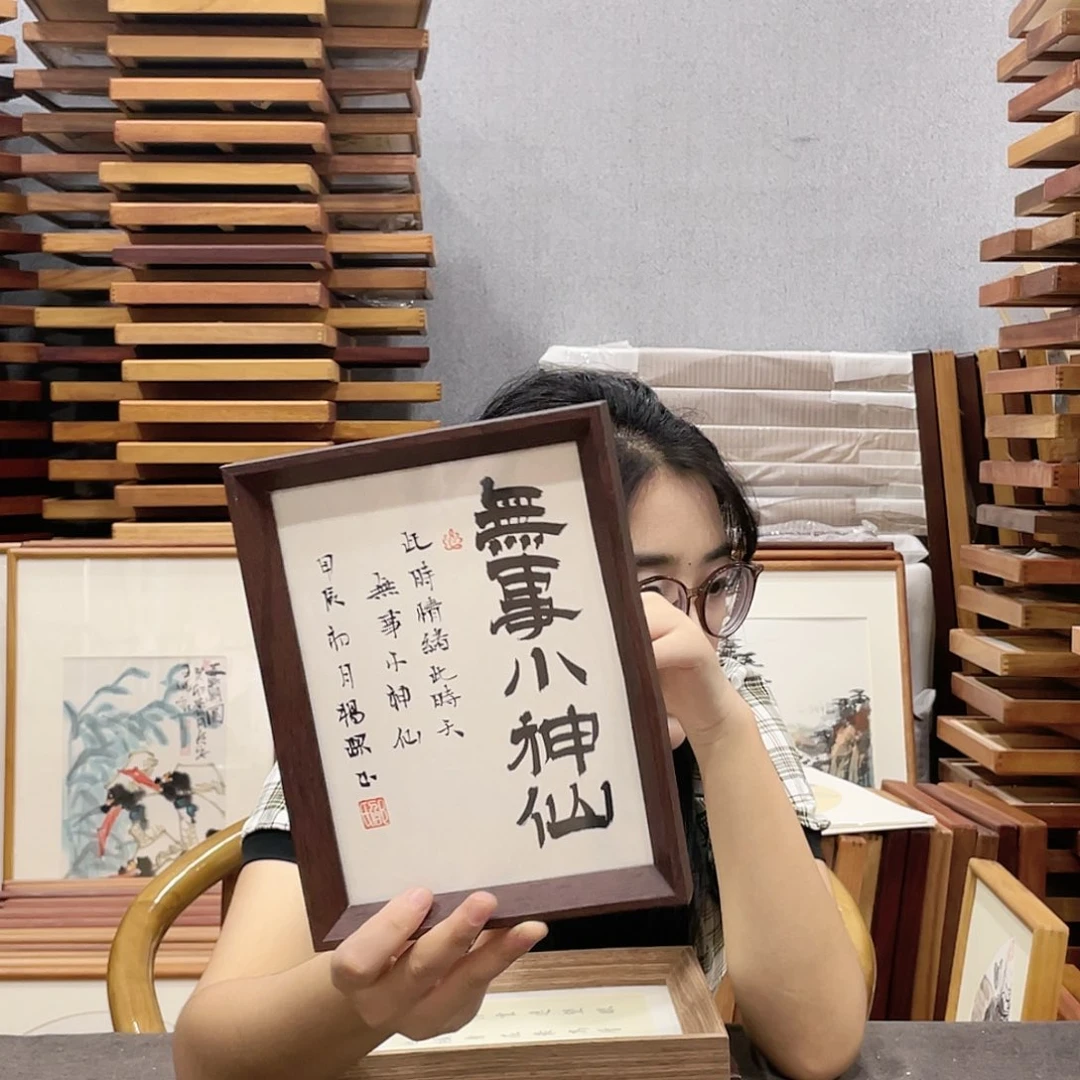 無事小神仙
此時情緒此時天
無事小神仙
甲辰初月楊